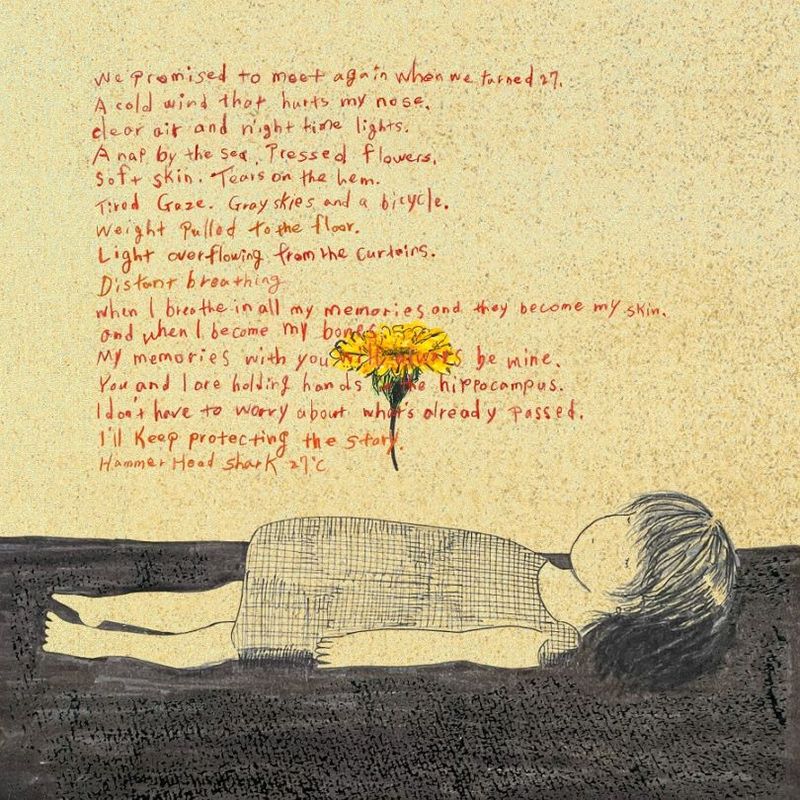 We promised to meet again when we turned 27.
A cold wind that hurts my nose.
clear air and night time lights.
A nap by the sea. Pressed flowers.
Soft skin. Tears on the hem.
Tired Gaze. Gray skies and a bicycle.
Weight Pulled to the floor.
Light overflowing from the curtains.
Distant breathing
when I breathe in all my memories and they become my skin.
and when I become my bones
My memories with you will always be mine.
You and I are holding hands in the hippocampus.
I don't have to worry about what's already passed.
I'll Keep protecting the story
Hammer Head Shark 27°C